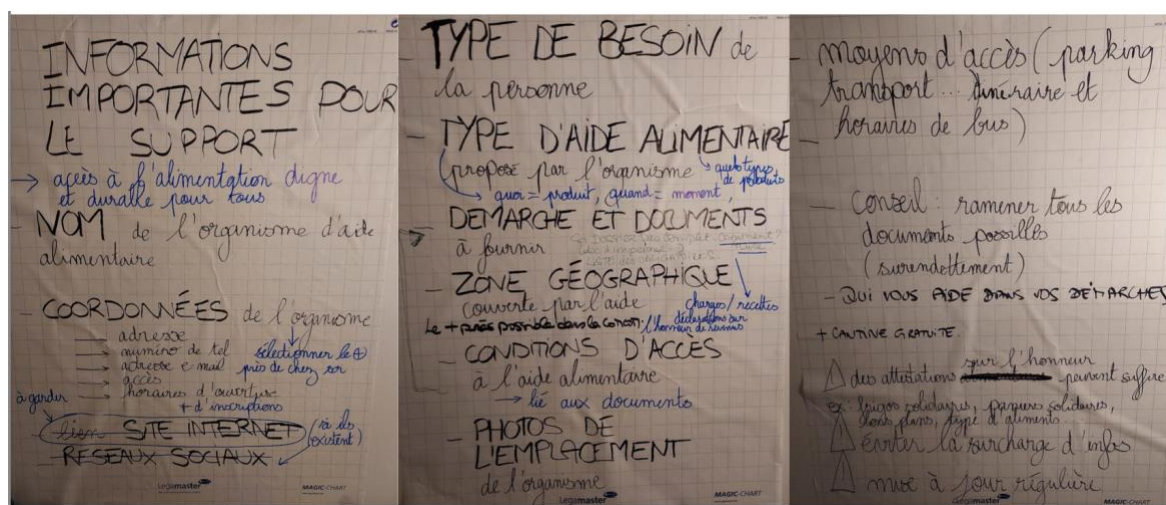 INFORMATIONS
IMPORTANTES POUR
LE SUPPORT
→ accès à l'alimentation digne
et durable pour tous
- NOM de l'organisme d'aide
alimentaire
- COORDONNÉES de l'organisme
→ adresse
→ numéro de tel
→ adresse e mail
→ accès
→ horaires d'ouverture
+ d'inscriptions
sélectionner le +
près de chez soi
à garder
lien SITE INTERNET
(s'ils
existent)
- RESEAUX SOCIAUX
Legamaster
MAGIC-CHART
TYPE DE BESOIN de
la personne
- TYPE D'AIDE ALIMENTAIRE
proposé par l'organisme
→ quels types
de produits
→ quoi = produit, quand = moment,
- DEMARCHE ET DOCUMENTS
à fournir
- ZONE GÉOGRAPHIQUE
couverte par l'aide
Le + près possible dans le
charges/recettes
déclarations sur
l'honneur
- CONDITIONS D'ACCÈS
à l'aide alimentaire
→ lié aux documents
- PHOTOS DE
L'EMPLACEMENT
de l'organisme
Legamaster
MAGIC-CHART
- moyens d'accès (parking
transport... itinéraire et
horaires de bus)
- Conseil : ramener tous les
documents possibles
(surendettement)
- QUI VOUS AIDE DANS VOS DÉMARCHES
+ CANTINE GRATUITE.
des attestations sur l'honneur peuvent suffire
ex: frigos solidaires, paniers solidaires,
bons plans, type d'aliments
éviter la surcharge d'infos
mise à jour régulière
Legamaster
MAGIC-CHART